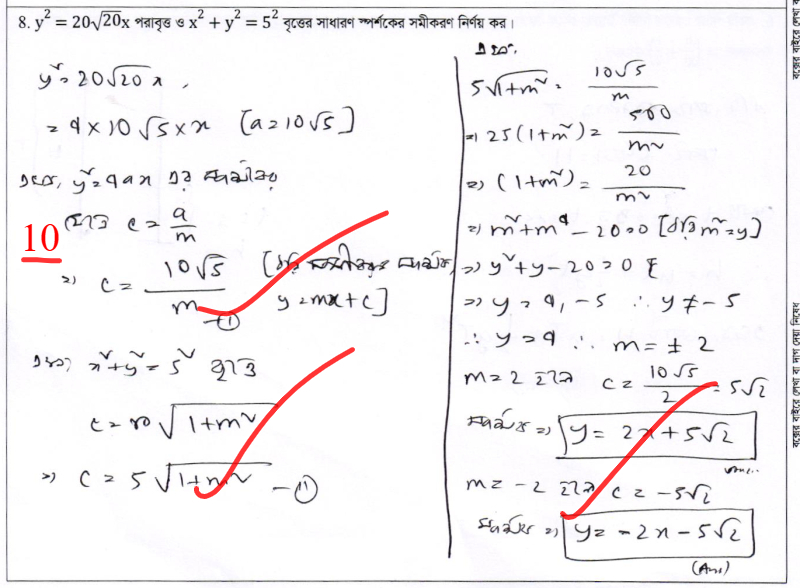 8. y² = 20√20x পরাবৃত্ত ও x² + y² = 5² বৃত্তের সাধারণ স্পর্শকের সমীকরণ নির্ণয় কর।
y² = 20√20 x,
= 4 × 10√5 × x [a = 10√5]
এখন, y² = 4ax এর স্পর্শক
হতে c = a/m
10
⇒ c = 10√5/m — (i)
y = mx + c]
এখন, x² + y² = 5² হতে
c = r√(1+m²)
⇒ c = 5√(1+m²) — (ii)
5√(1+m²) = 10√5/m
⇒ 25(1+m²) = 500/m²
⇒ (1+m²) = 20/m²
⇒ m² + m⁴ − 20 = 0 [ধরি m² = y]
⇒ y² + y − 20 = 0
⇒ y = 4, −5 ∴ y ≠ −5
∴ y = 4 ∴ m = ± 2
m = 2 হলে c = 10√5/2 = 5√2
স্পর্শক ⇒ y = 2x + 5√2
Ans.
m = −2 হলে c = −5√2
স্পর্শক ⇒ y = −2x − 5√2
(Ans)
বক্সের বাইরে লেখা বা দাগ দেয়া নিষেধ